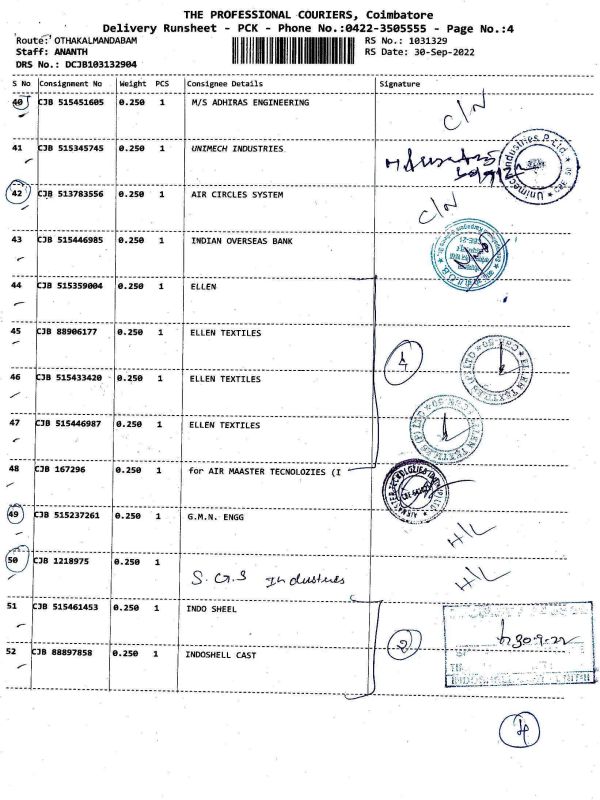 THE PROFESSIONAL COURIERS, Coimbatore
Delivery Runsheet - PCK - Phone No.:0422-3505555 - Page No.:4
Route: OTHAKALMANDABAM RS No.: 1031329
Staff: ANANTH RS Date: 30-Sep-2022
DRS No.: DCJB103132904
S No Consignment No Weight PCS Consignee Details Signature
40 CJB 515451605 0.250 1 M/S ADHIRAS ENGINEERING C/N
41 CJB 515345745 0.250 1 UNIMECH INDUSTRIES
42 CJB 513783556 0.250 1 AIR CIRCLES SYSTEM C/N
43 CJB 515446985 0.250 1 INDIAN OVERSEAS BANK
44 CJB 515359004 0.250 1 ELLEN
45 CJB 88906177 0.250 1 ELLEN TEXTILES
46 CJB 515433420 0.250 1 ELLEN TEXTILES
47 CJB 515446987 0.250 1 ELLEN TEXTILES
48 CJB 167296 0.250 1 for AIR MAASTER TECNOLOZIES (I
49 CJB 515237261 0.250 1 G.M.N. ENGG H/L
50 CJB 1218975 0.250 1 S.G.S Industries H/L
51 CJB 515461453 0.250 1 INDO SHEEL 30.9.22
52 CJB 88897858 0.250 1 INDOSHELL CAST 2